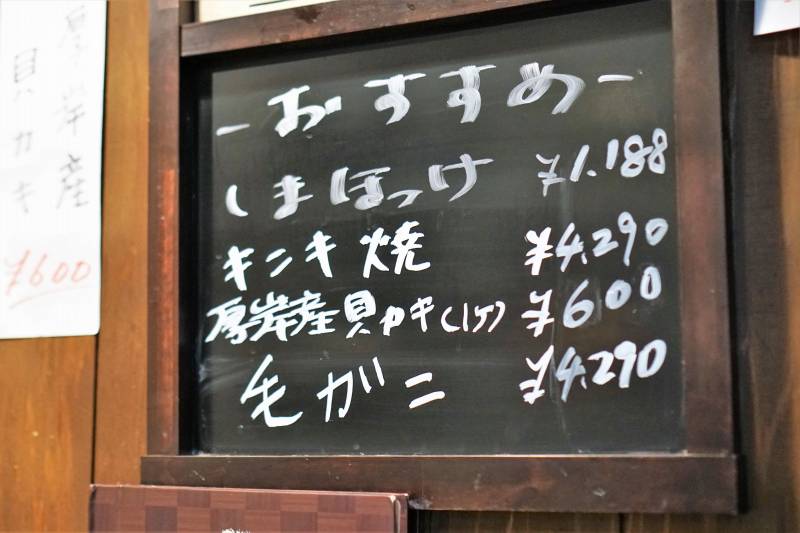 厚岸産
貝カキ
¥600
-おすすめ-
しまほっけ ¥1.188
キンキ焼 ¥4.290
厚岸産貝カキ(1ケ) ¥600
毛がニ ¥4.290